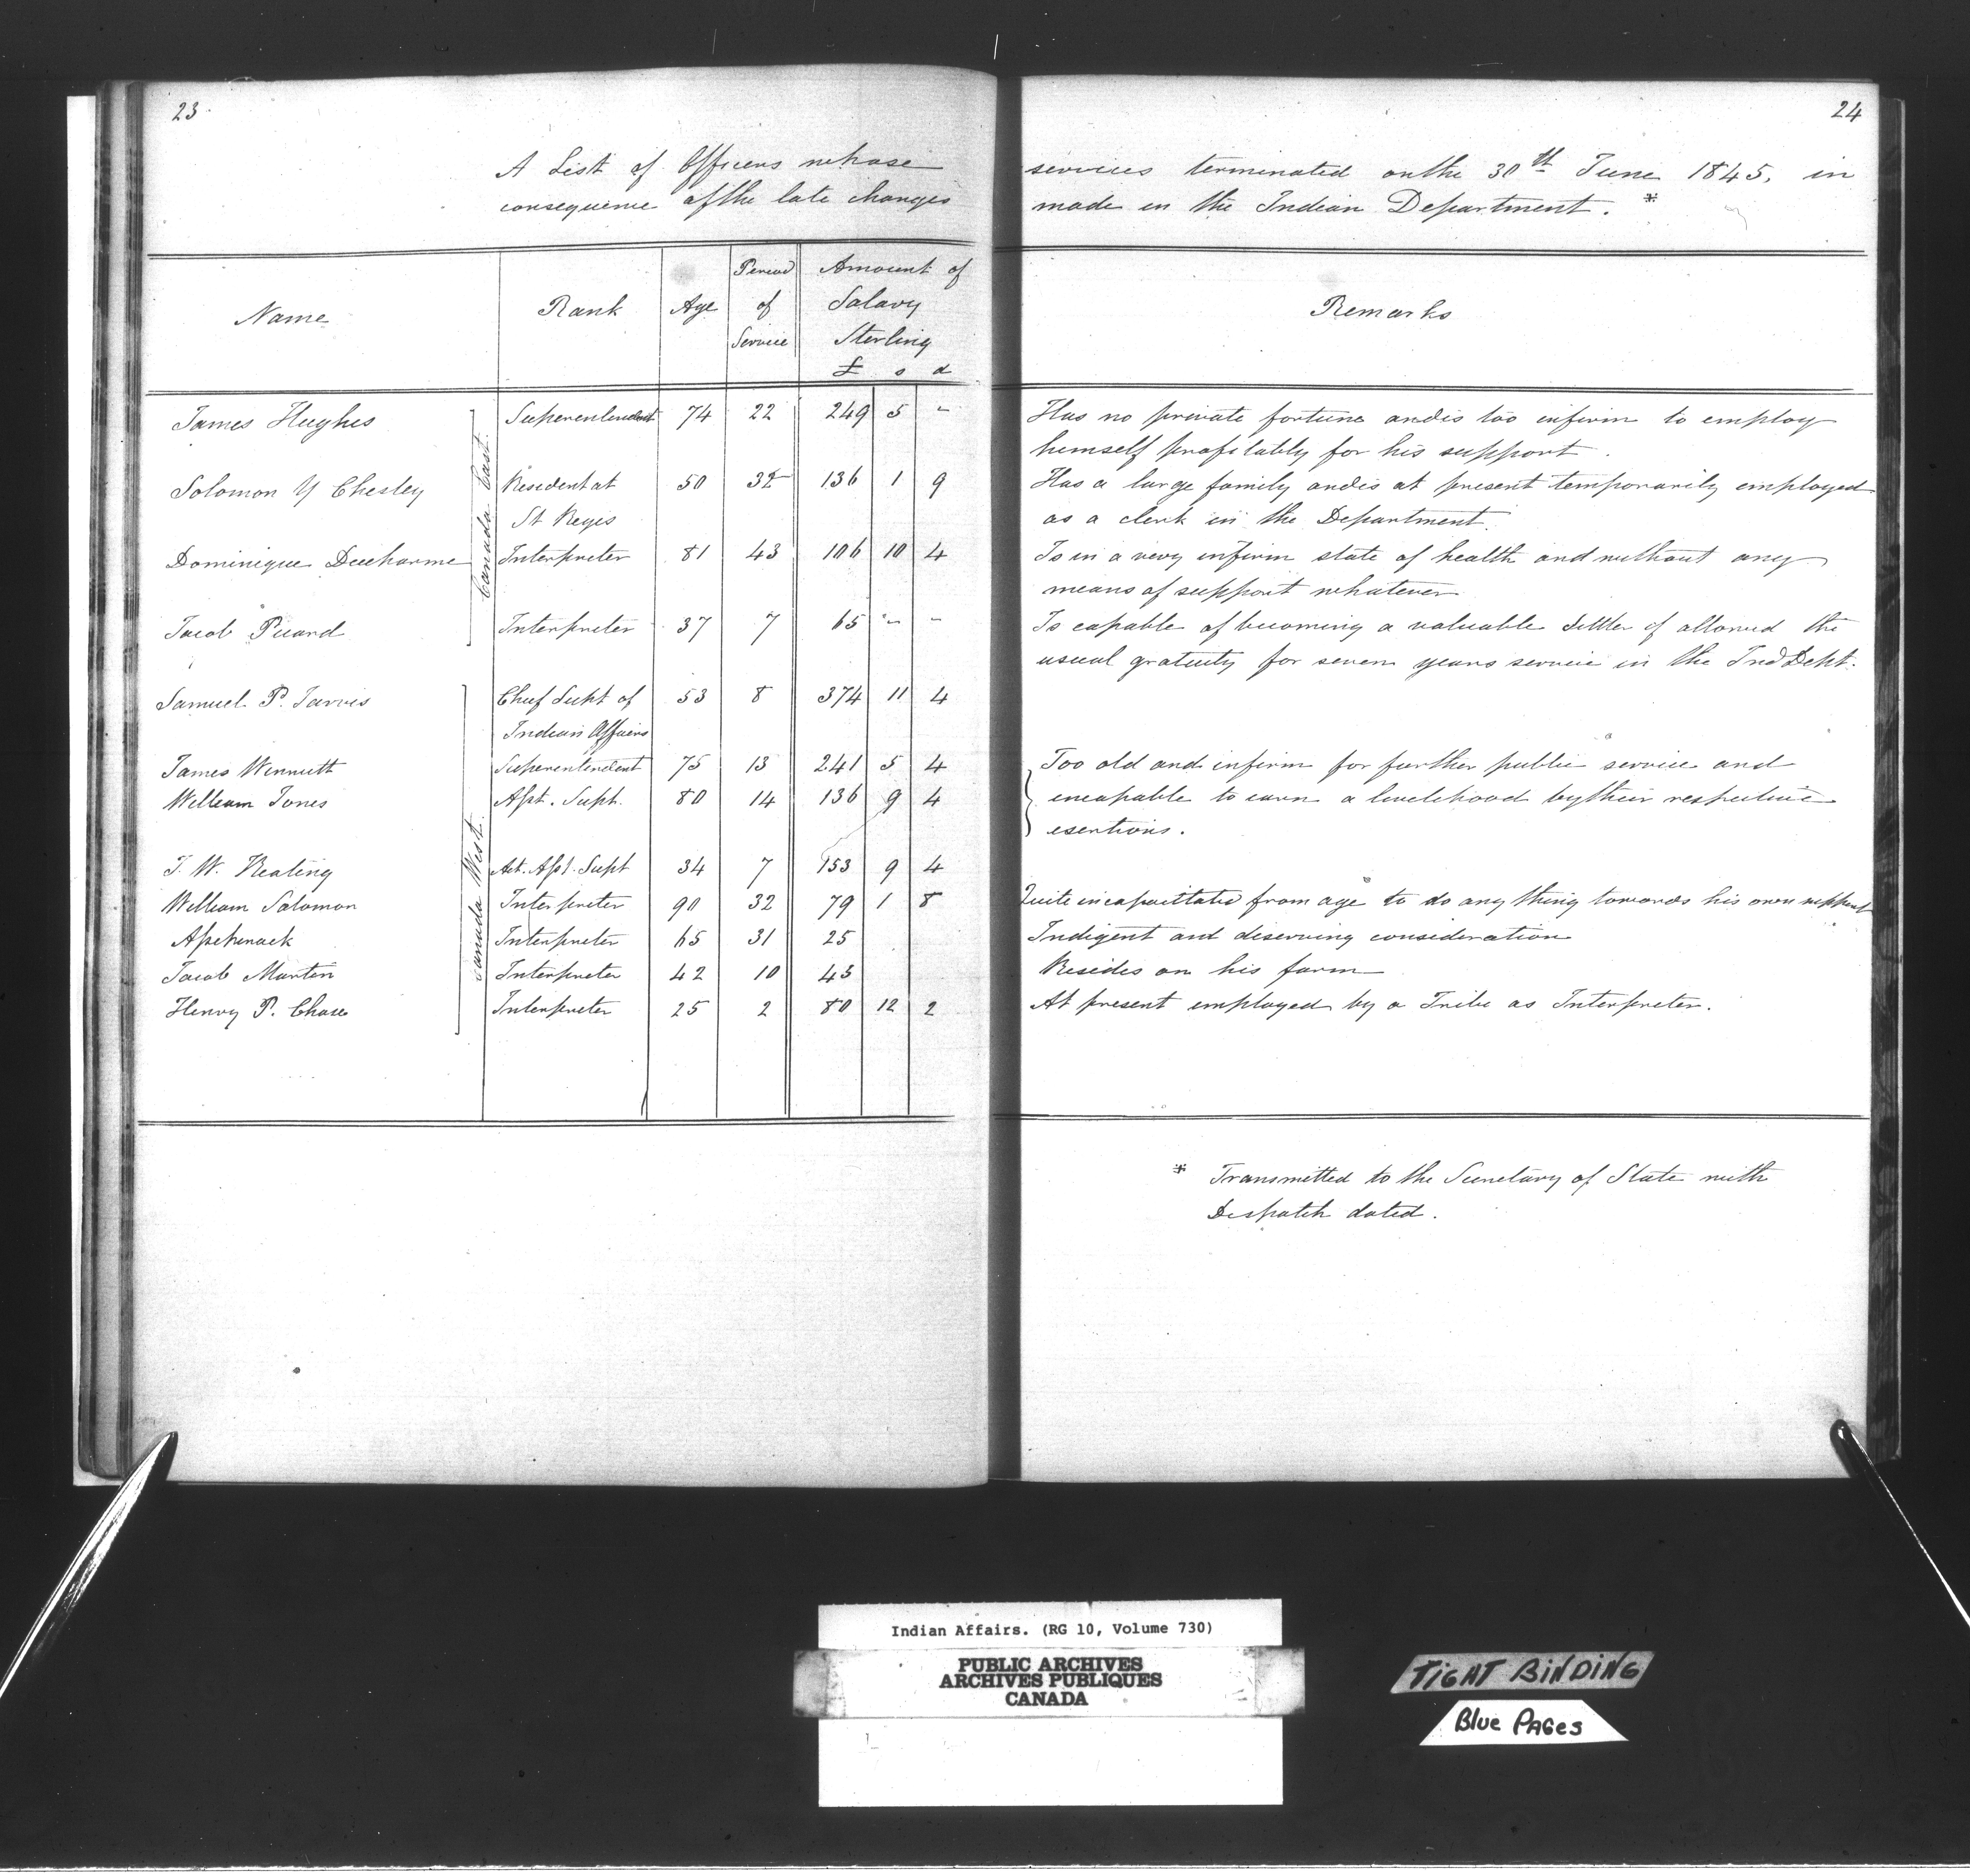 23
24
A List of Officers whose services terminated on the 30th June 1845, in
consequence of the late changes made in the Indian Department. *
Name Rank Age Period of Service Amount of Salary Sterling £ s d Remarks
Canada East.
James Hughes Superentendent 74 22 249 5 - Has no private fortune and is too infirm to employ
himself profitably for his support.
Solomon Y Chesley Resident at 50 32 136 1 9 Has a large family and is at present temporarily employed
St Regis as a clerk in the Department.
Dominique Ducharme Interpreter 81 43 106 10 4 Is in a very infirm state of health and without any
means of support whatever
Jacob Picard Interpreter 37 7 65 - - Is capable of becoming a valuable settler if allowed the
usual gratuity for seven years service in the Ind Dept.
Canada West.
Samuel P. Jarvis Chief Supt of 53 8 374 11 4
Indian Affairs
James Winnutt Superentendent 75 13 241 5 4 Too old and infirm for further public service and
William Jones Asst. Supt. 80 14 136 9 4 incapable to earn a livelihood by their respective
exertions.
J. W. Keating Act. Asst. Supt 34 7 153 9 4
William Solomon Interpreter 90 32 79 1 8 Quite incapacitated from age to do any thing towards his own support
Apehnack Interpreter 65 31 25 Indigent and deserving consideration
Jacob Martin Interpreter 42 10 45 Resides on his farm
Henry P. Chase Interpreter 25 2 80 12 2 At present employed by a Tribe as Interpreter.
* Transmitted to the Secretary of State with
Despatch dated.
Indian Affairs. (RG 10, Volume 730)
PUBLIC ARCHIVES
ARCHIVES PUBLIQUES
CANADA
TIGHT BINDING
Blue PAGes